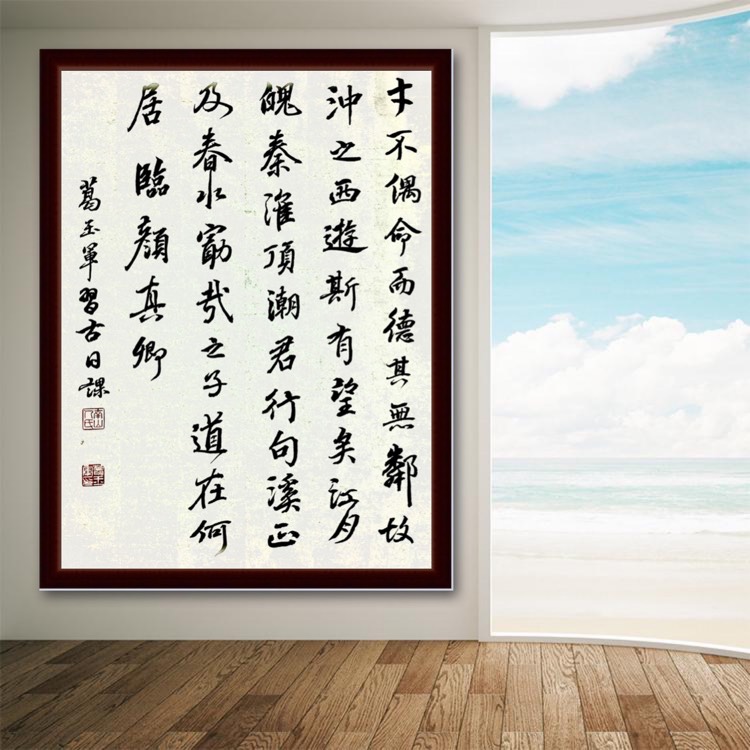 才不偶命而德其無鄰故
沖之西遊斯有望矣江月
魄秦淮頂潮君行句溪正
及春水勗哉之子道在何
居臨顏真卿
葛玉軍習古日課